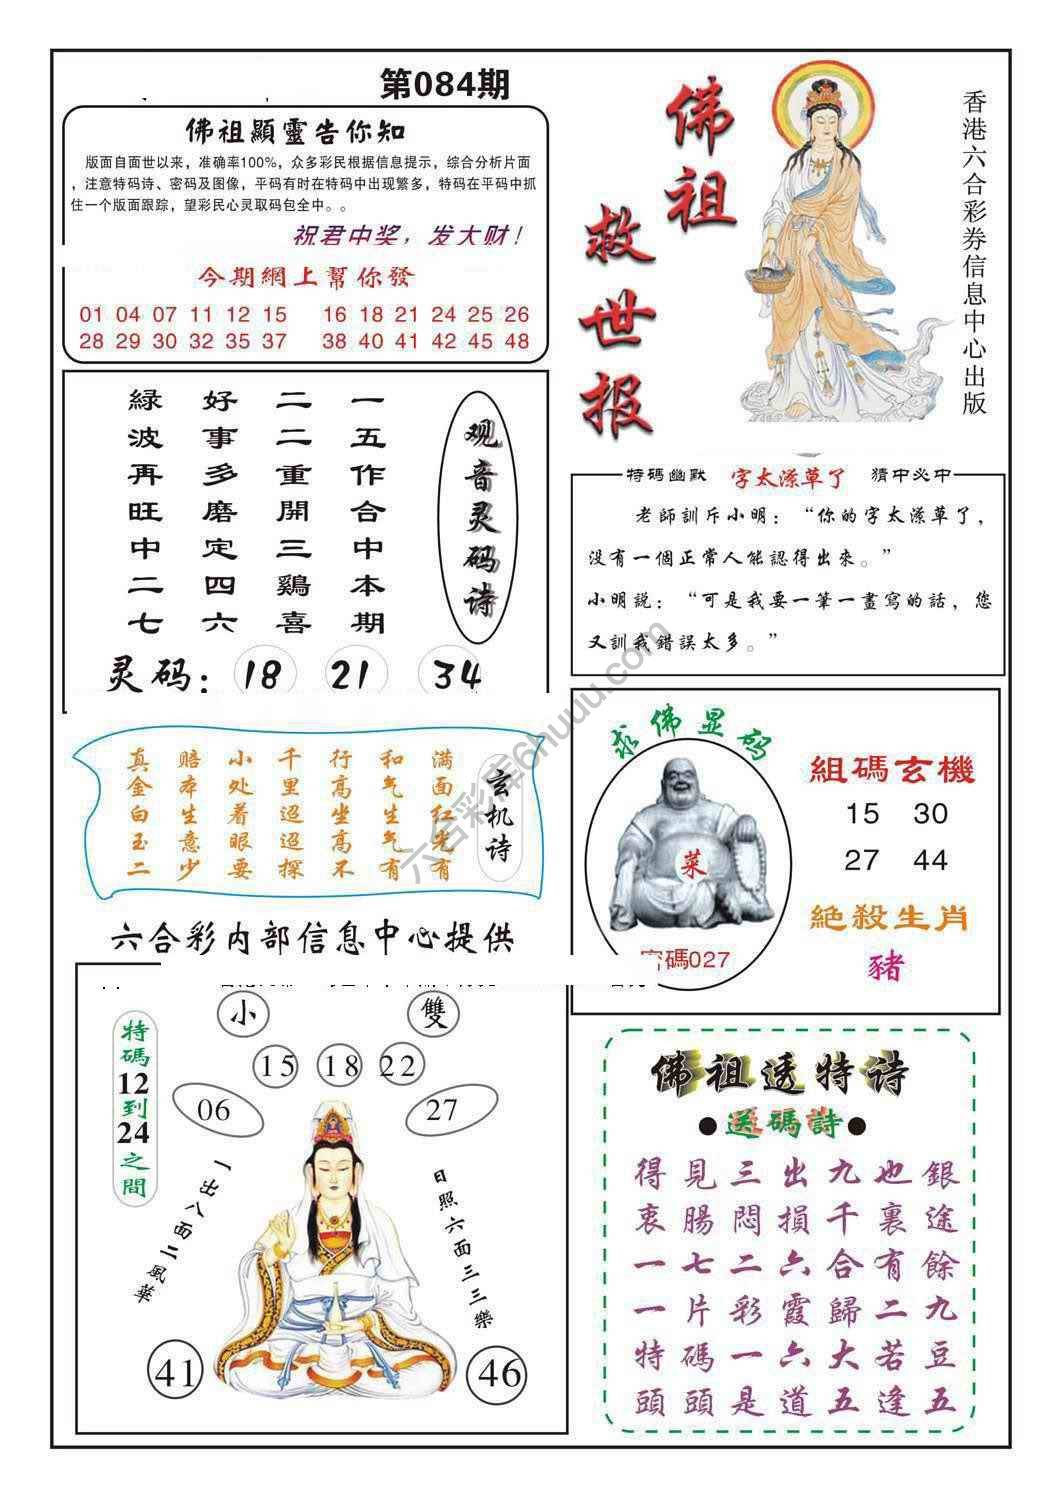 第084期
佛祖顯靈告你知
版面自面世以来，准确率100%，众多彩民根据信息提示，综合分析片面
，注意特码诗、密码及图像，平码有时在特码中出现繁多，特码在平码中抓
住一个版面跟踪，望彩民心灵取码包全中。。
祝君中奖，发大财！
今期網上幫你發
01 04 07 11 12 15 16 18 21 24 25 26
28 29 30 32 35 37 38 40 41 42 45 48
佛祖
救世报
香港六合彩券信息中心出版
观音灵码诗
一五作合中本期
二二重開三鷄喜
好事多磨定四六
緑波再旺中二七
灵码：18 21 34
特碼幽默 字太潦草了 猜中必中
老師訓斥小明：“你的字太潦草了，
没有一個正常人能認得出來。”
小明説：“可是我要一筆一畫寫的話，您
又訓我錯誤太多。”
玄机诗
满面红光有
和气生气有
行高坐高不
千里迢迢探
小处着眼要
赔本生意少
真金白玉二
求佛显码
菜
密碼027
組碼玄機
15 30
27 44
絶殺生肖
豬
六合彩内部信息中心提供
小 雙
15 18 22
06 27
特碼12到24之間
一出八面二風華
日照六面三三樂
41 46
佛祖透特诗
●送碼詩●
得見三出九也銀
衷腸悶損千裏途
一七二六合有餘
一片彩霞歸二九
特碼一六大若豆
頭頭是道五逢五
六合彩库6huuu.com